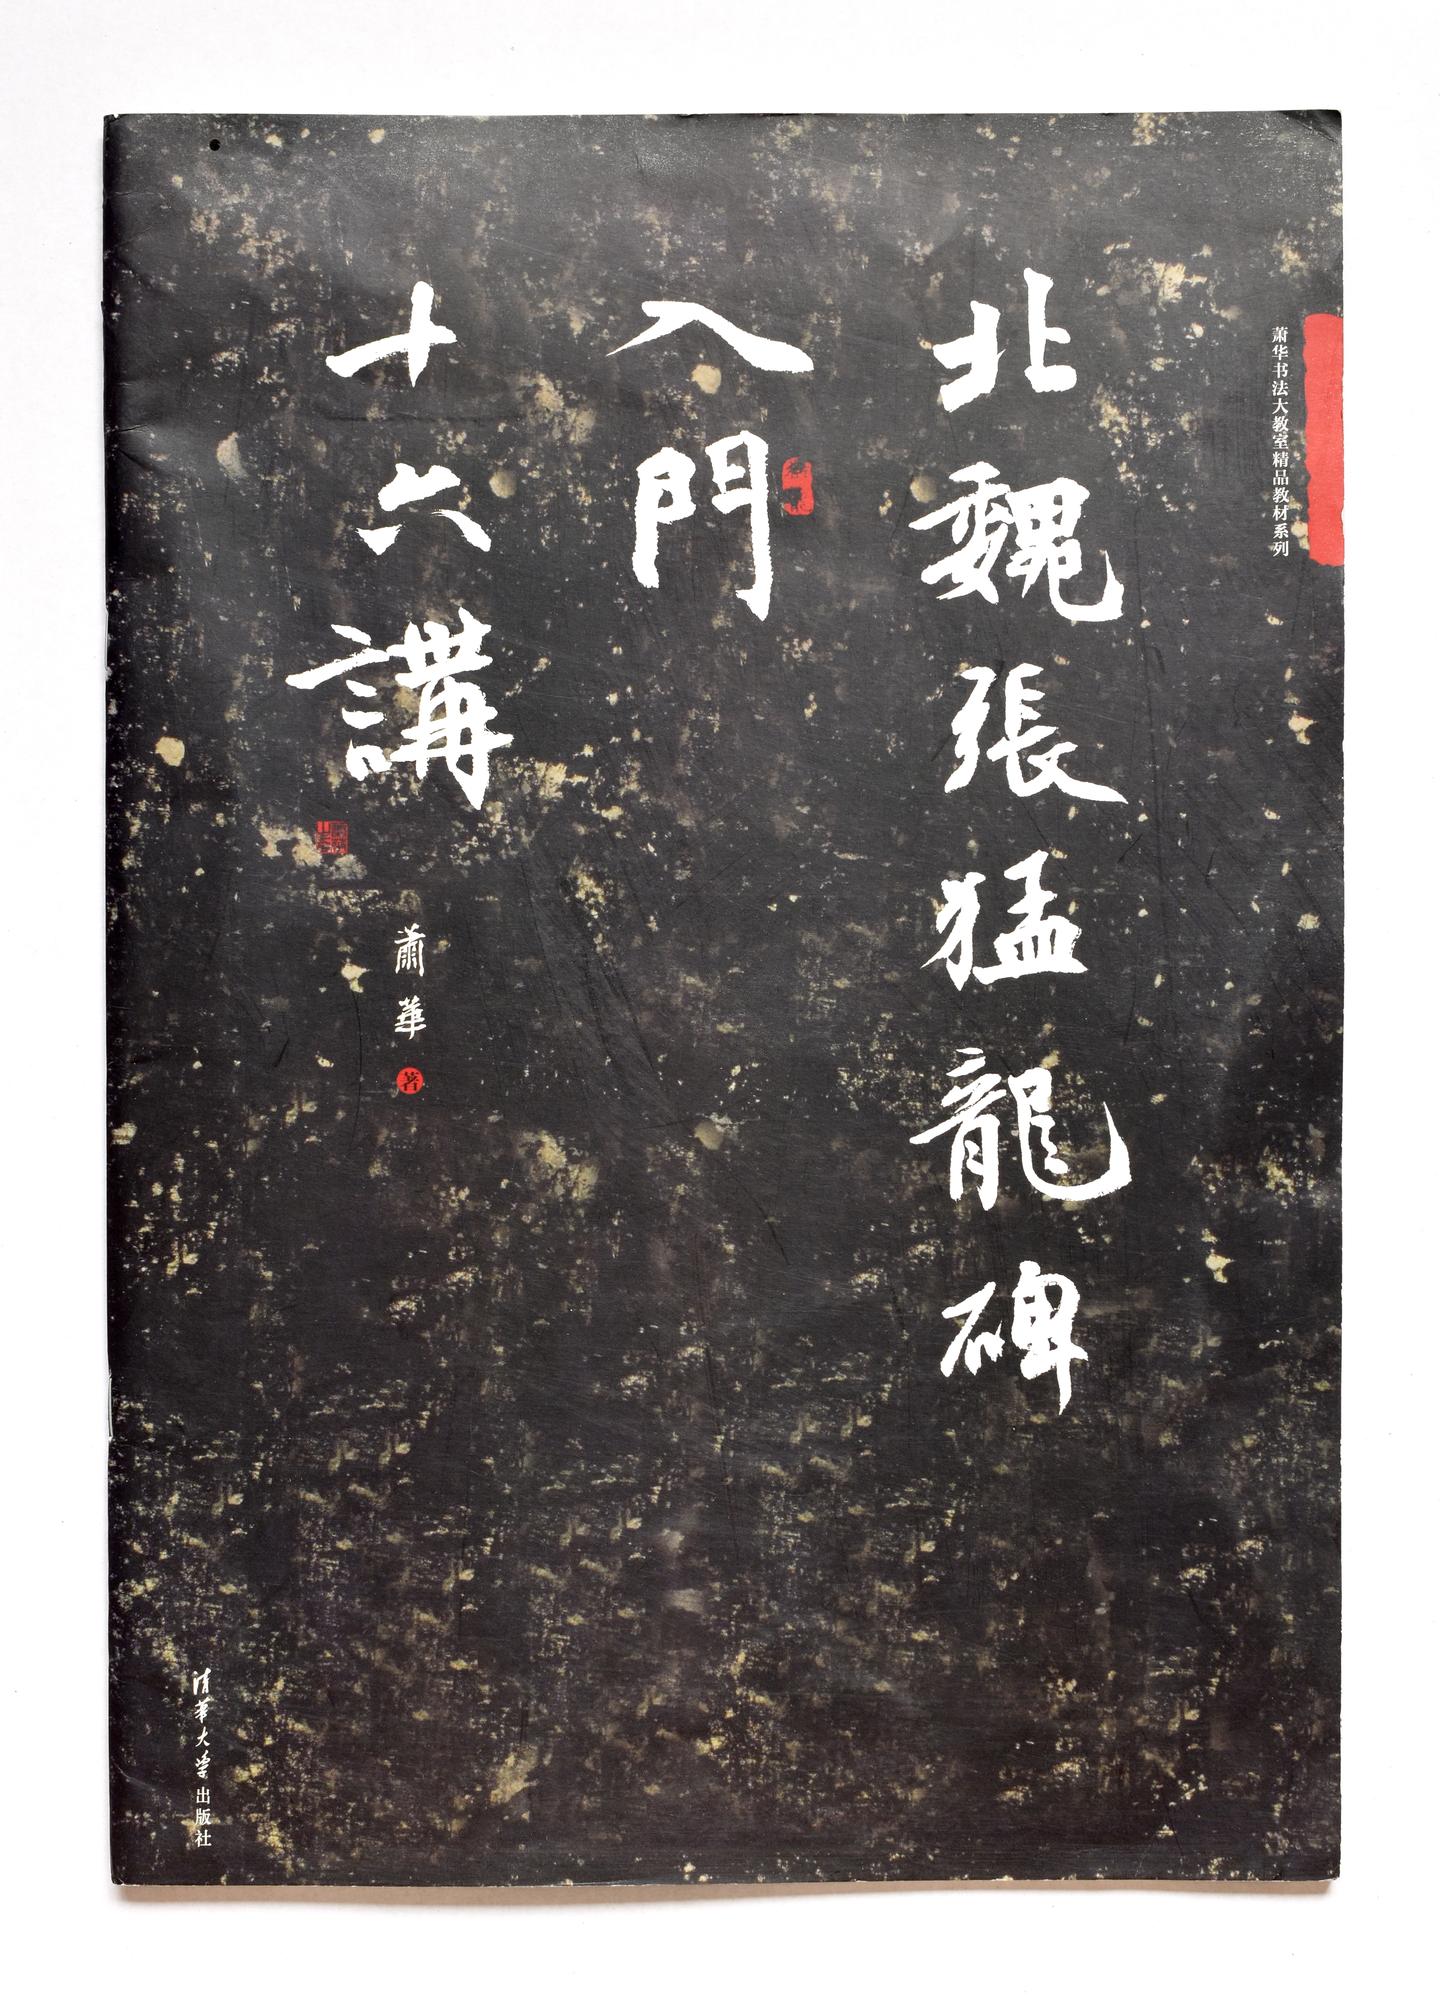 萧华书法大教室精品教材系列
北魏張猛龍碑
入門
十六講
蕭華 著
清華大学出版社